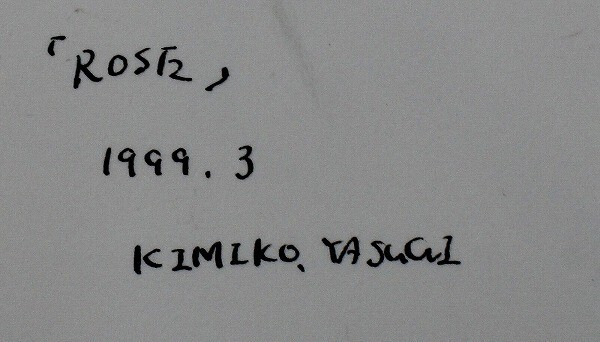 「ROSE」
1999.3
KIMIKO. YASUGI